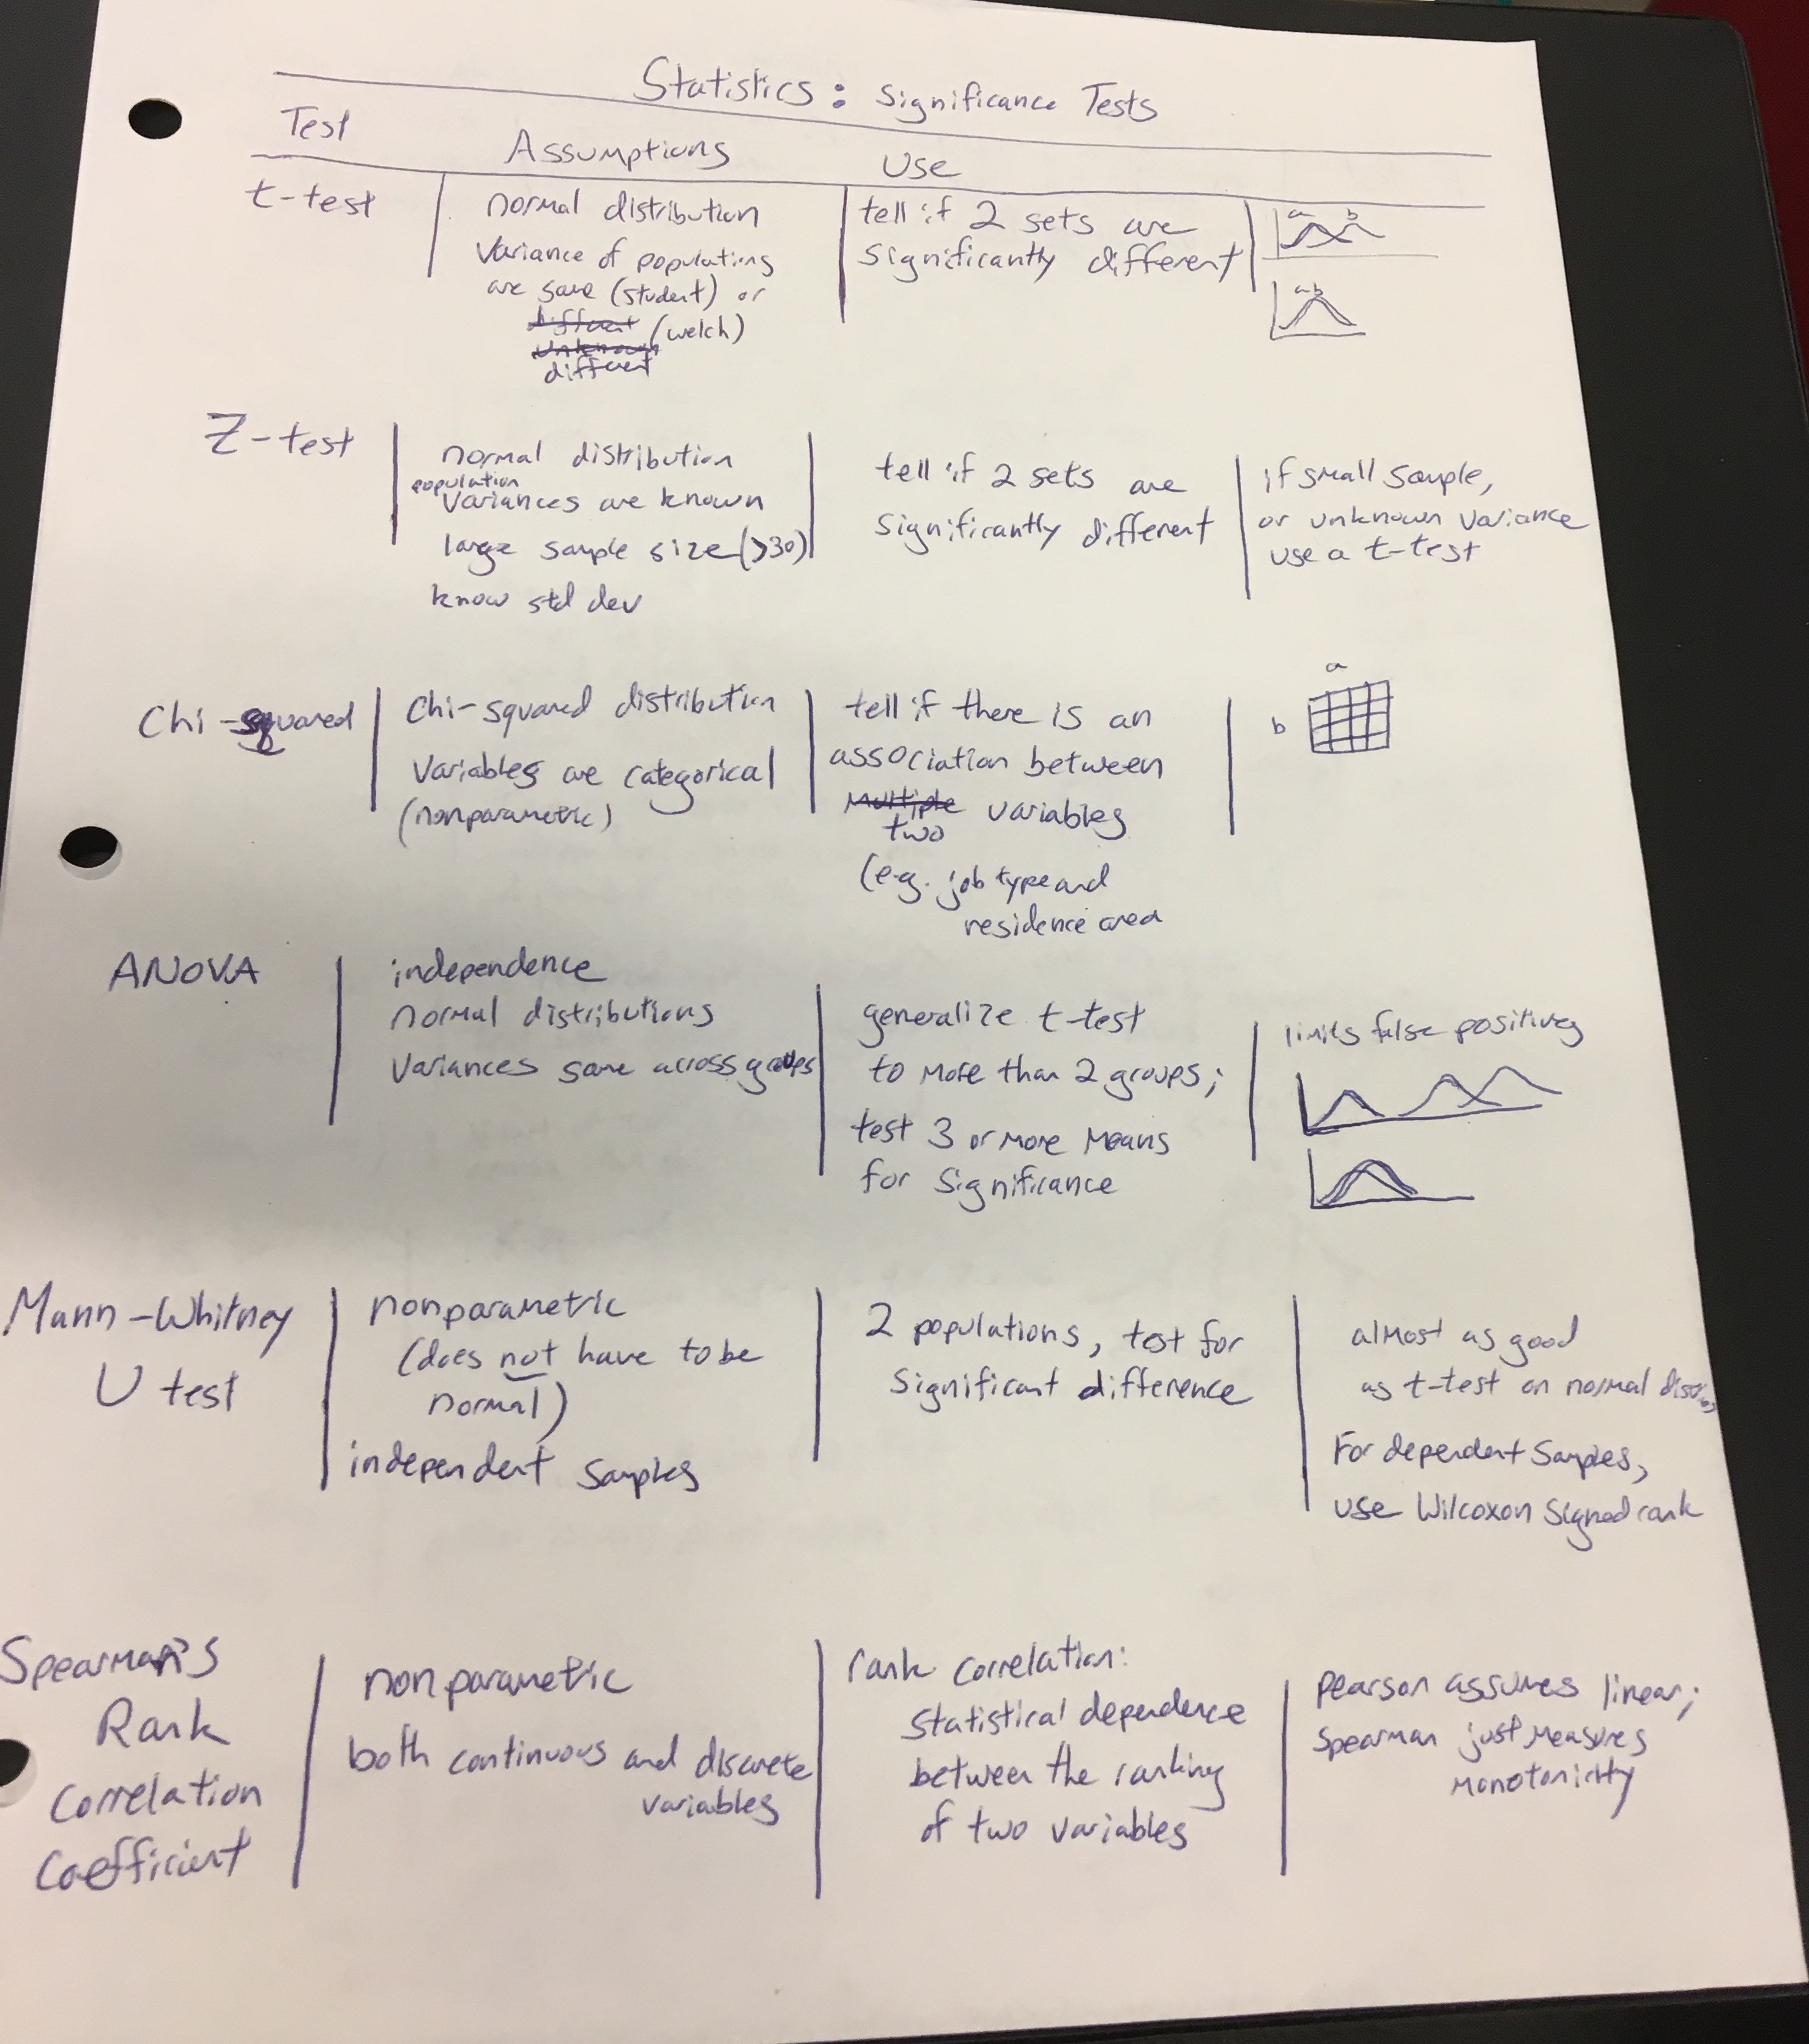 Statistics: Significance Tests
Test
Assumptions
Use
t-test
normal distribution
variance of populations
are same (student) or
different (welch)
unknown
different
tell if 2 sets are
significantly different
a b
a b
Z-test
normal distribution
population
variances are known
large sample size (>30)
know std dev
tell if 2 sets are
significantly different
if small sample,
or unknown variance
use a t-test
Chi-squared
Chi-squared distribution
variables are categorical
(nonparametric)
tell if there is an
association between
multiple variables
two
(e.g. job type and
residence area
a
b
ANOVA
independence
normal distributions
variances same across groups
generalize t-test
to more than 2 groups;
test 3 or more means
for significance
limits false positives
Mann-Whitney
U test
nonparametric
(does not have to be
normal)
independent samples
2 populations, test for
significant difference
almost as good
as t-test on normal
For dependent samples,
use Wilcoxon signed rank
Spearman's
Rank
Correlation
Coefficient
nonparametric
both continuous and discrete
variables
rank correlation:
statistical dependence
between the ranking
of two variables
pearson assumes linear;
spearman just measures
monotonicity